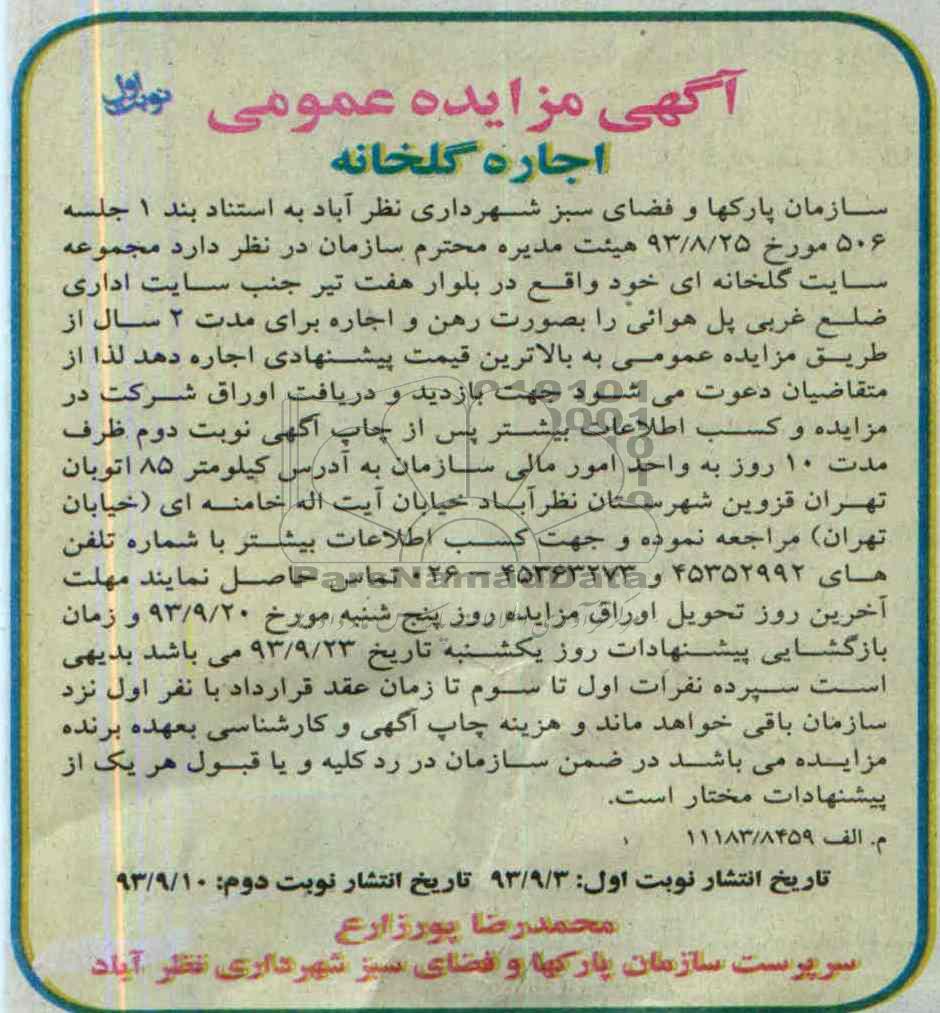 آگهی مزایده عمومی
نوبت اول
اجاره گلخانه
سازمان پارکها و فضای سبز شهرداری نظر آباد به استناد بند ۱ جلسه
۵۰۶ مورخ ۹۳/۸/۲۵ هیئت مدیره محترم سازمان در نظر دارد مجموعه
سایت گلخانه ای خود واقع در بلوار هفت تیر جنب سایت اداری
ضلع غربی پل هوائی را بصورت رهن و اجاره برای مدت ۲ سال از
طریق مزایده عمومی به بالاترین قیمت پیشنهادی اجاره دهد لذا از
متقاضیان دعوت می شود جهت بازدید و دریافت اوراق شرکت در
مزایده و کسب اطلاعات بیشتر پس از چاپ آگهی نوبت دوم ظرف
مدت ۱۰ روز به واحد امور مالی سازمان به آدرس کیلومتر ۸۵ اتوبان
تهران قزوین شهرستان نظرآباد خیابان آیت اله خامنه ای (خیابان
تهران) مراجعه نموده و جهت کسب اطلاعات بیشتر با شماره تلفن
های ۴۵۳۵۲۹۹۲ و ۴۵۳۶۳۲۷۳ – ۰۲۶ تماس حاصل نمایند مهلت
آخرین روز تحویل اوراق مزایده روز پنج شنبه مورخ ۹۳/۹/۲۰ و زمان
بازگشایی پیشنهادات روز یکشنبه تاریخ ۹۳/۹/۲۳ می باشد بدیهی
است سپرده نفرات اول تا سوم تا زمان عقد قرارداد با نفر اول نزد
سازمان باقی خواهد ماند و هزینه چاپ آگهی و کارشناسی بعهده برنده
مزایده می باشد در ضمن سازمان در رد کلیه و یا قبول هر یک از
پیشنهادات مختار است.
م. الف ۱۱۱۸۳/۸۴۵۹
تاریخ انتشار نوبت اول: ۹۳/۹/۳ تاریخ انتشار نوبت دوم: ۹۳/۹/۱۰
محمدرضا پورزارع
سرپرست سازمان پارکها و فضای سبز شهرداری نظر آباد
ParsNamadData